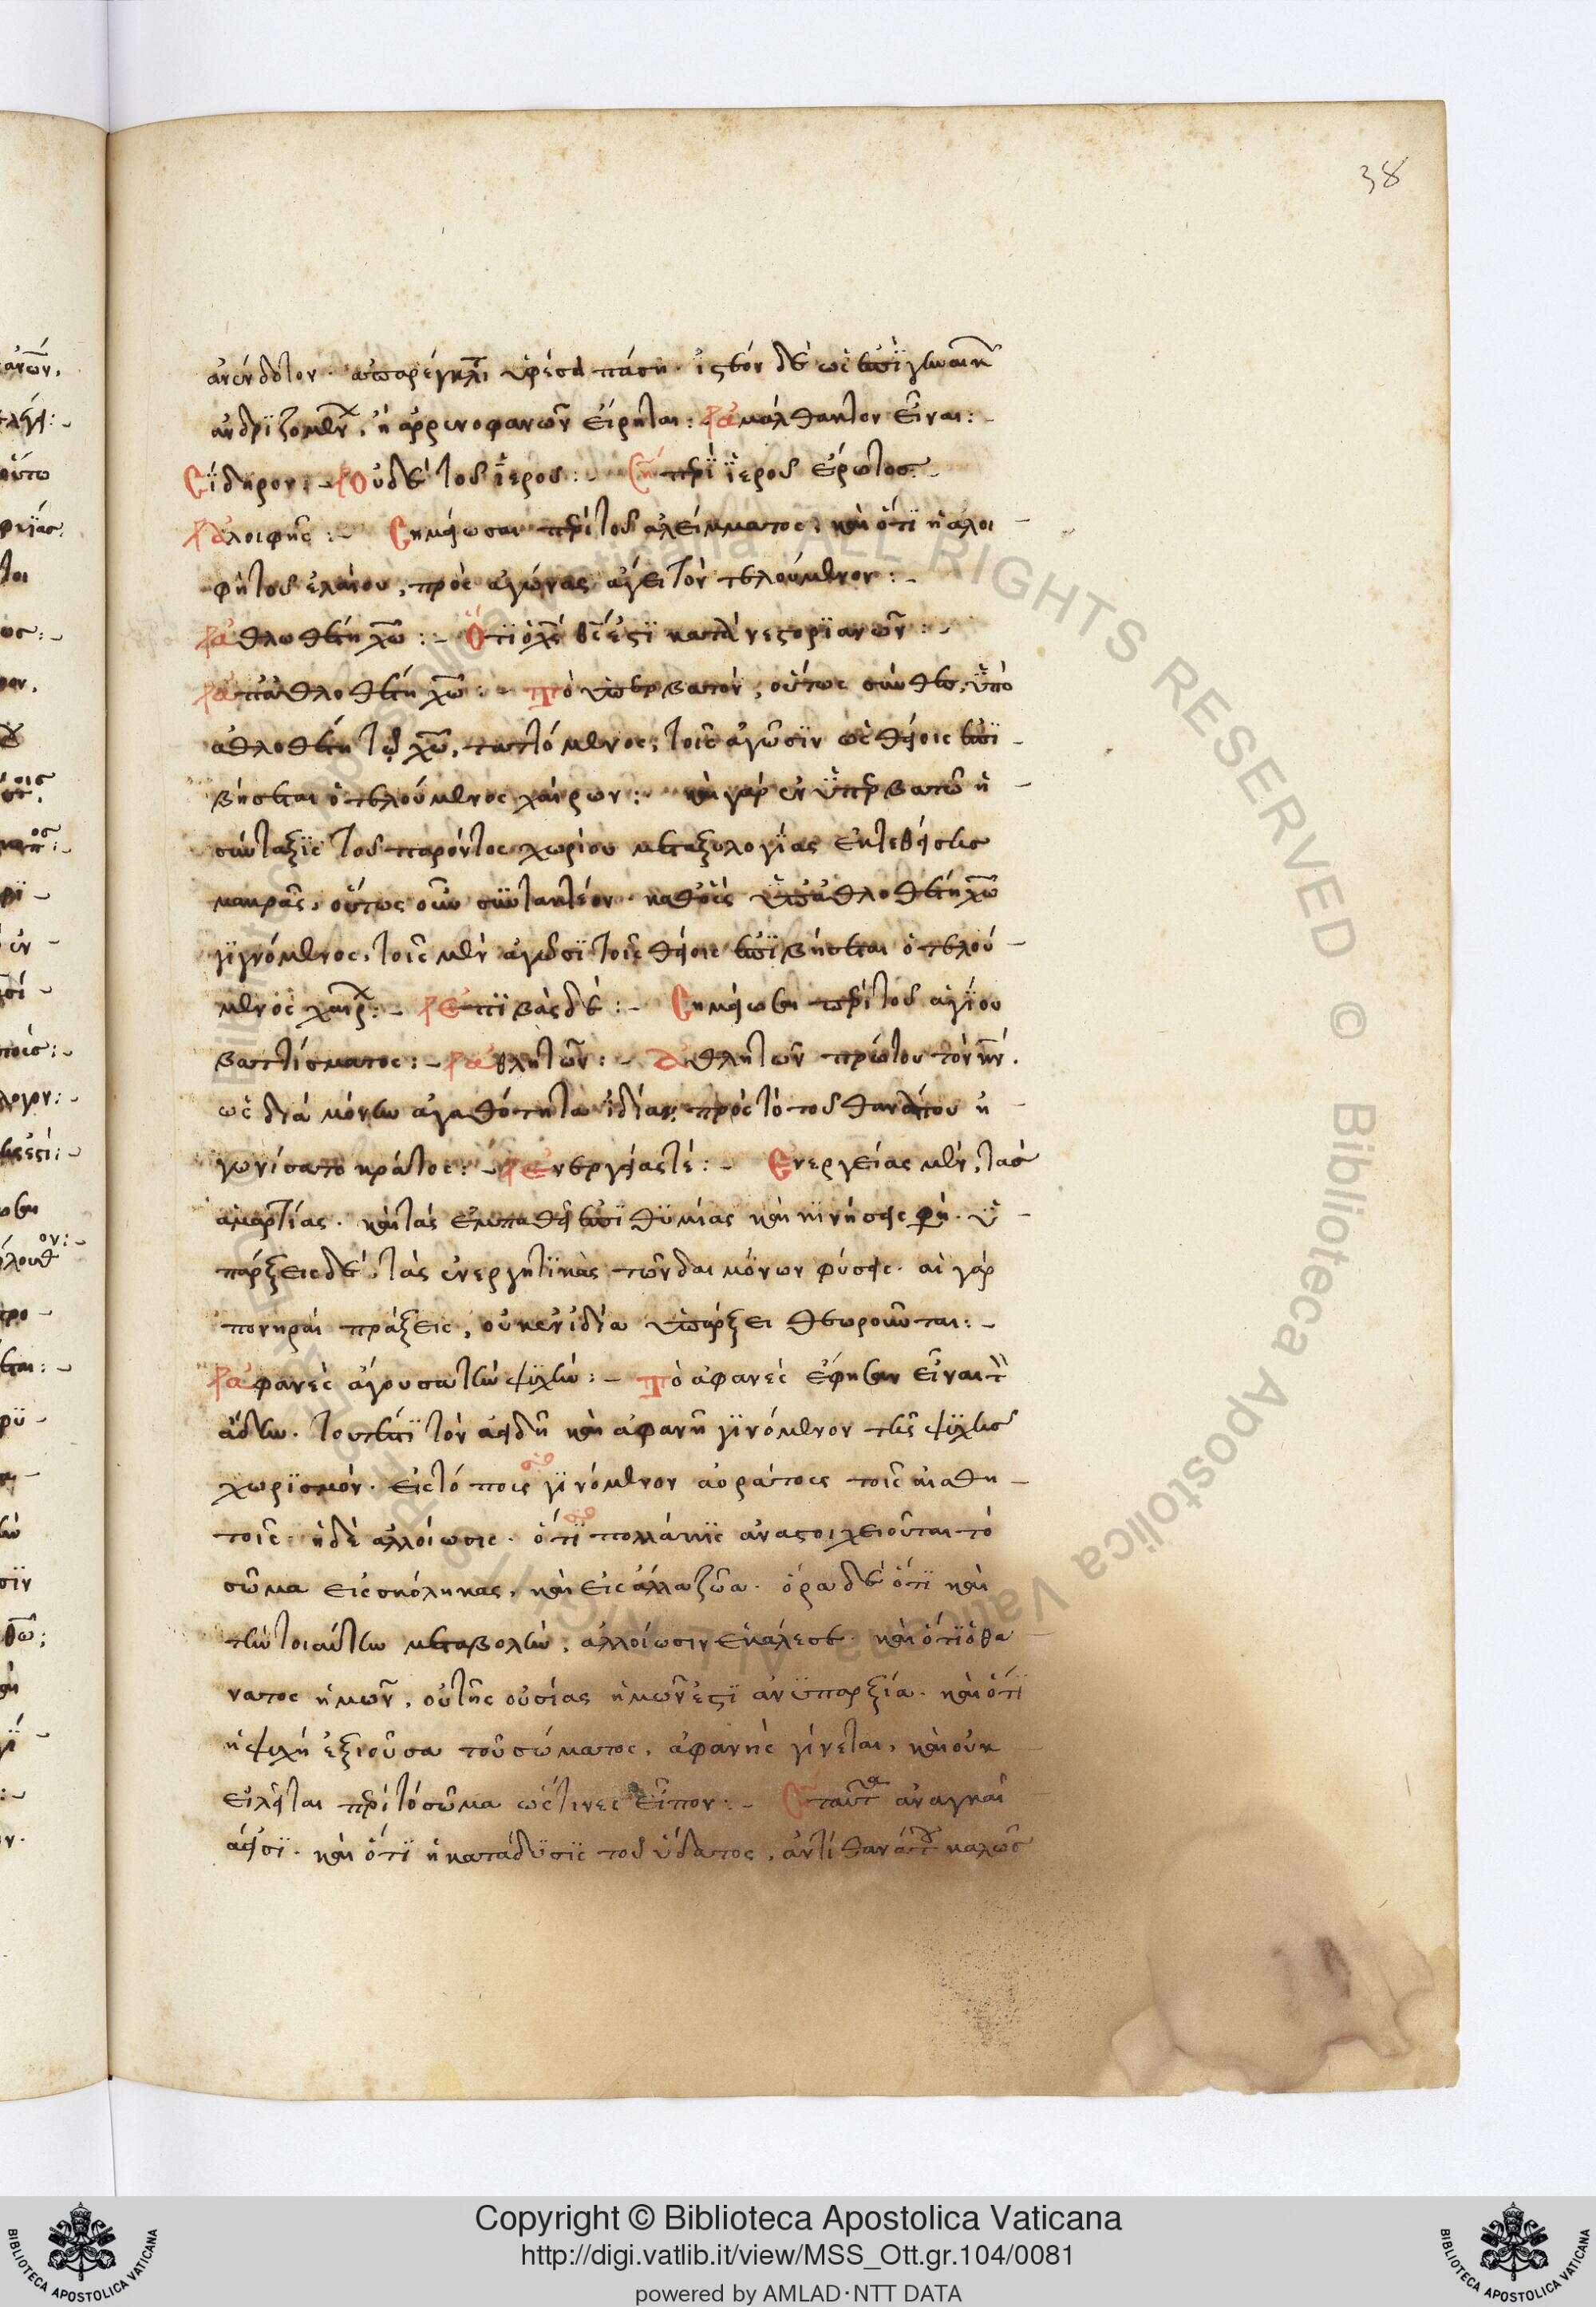 38
ἀνένδοτον. ἀπαρέγκλιτον ὑφέσει πάση. ἰστέον δὲ ὡς ἐπὶ γυναικῶν
ἀνδριζομένων, ἡ ἀρρενοφανῶν εἴρηται: ἀμάλθακτον εἶναι:
Σίδηρον: Οὐδὲ τοῦ ἱεροῦ: Ση περὶ ἱεροῦ ἔρωτος
ἀλοιφῆς: Σημείωσαι περὶ τοῦ ἀλείμματος, καὶ ὅτι ἡ ἀλοι
φὴ τοῦ ἐλαίου, πρὸς ἀγῶνας ἄγει τὸν τελούμενον:
ἀθλοθέτη χῶ: Ὅτι ὁ χς θς ἐστι κατὰ νεστοριανῶν:
ὑπ' ἀθλοθέτη χῶ: Τὸ ὑπερβατὸν, οὕτως σύνθες, ὑπὸ
ἀθλοθέτη τῷ χῶ, ταττόμενος, τοῖς ἀγῶσιν ὡς θείοις ἐπι
βήσεται ὁ τελούμενος χαίρων: καὶ γὰρ ἐν ὑπερβατῶ ἡ
σύνταξις τοῦ παρόντος χωρίου μεταξυλογίας ἐκτεθείσης
μακρᾶς, οὕτως οὖν συντακτέον. καθ' οὓς ὑπ' ἀθλοθέτη χῶ
γιγνόμενος, τοῖς μὲν ἀγῶσι τοῖς θείοις ἐπιβήσεται ὁ τελού
μενος χαίρων: Ἐπιβὰς δὲ: Σημείωσαι περὶ τοῦ ἁγίου
βαπτίσματος: ἀθλητῶν: Ἀθλητῶν πρώτου τὸν ιν.
ὡς διὰ μόνην ἀγαθότητα ἰδίαν, πρὸς τὸ τοῦ θανάτου ἠ
γωνίσατο κράτος: Ἐνεργείας τέ: Ἐνεργείας μὲν, τὰς
ἁμαρτίας. καὶ τὰς ἐμπαθεῖς ἐπιθυμίας καὶ κινήσεις φησί. ὑ
πάρξεις δὲ, τὰς ἐνεργητικὰς τῶν δαιμόνων φύσεις. αἱ γὰρ
πονηραὶ πράξεις, οὐκ ἐν ἰδία ὑπάρξει θεωροῦνται:
ἀφανὲς ἄγουσα τὴν ψυχὴν: Τὸ ἀφανὲς ἔφησεν εἶναι τὸν
ἅδην. τουτέστι τὸν ἀειδῆ καὶ ἀφανῆ γινόμενον τῆς ψυχῆς
χωρισμόν. εἰς τόπους γινόμενον ἀοράτους τοῖς αἰσθη
τοῖς. ἡ δὲ ἀλλοίωσις. ὅτι πολλάκις ἀναστοιχειοῦται τὸ
σῶμα εἰς σκώληκας, καὶ εἰς ἄλλα ζῶα. ὅρα δὲ ὅτι καὶ
τὴν τοιαύτην μεταβολὴν, ἀλλοίωσιν ἐκάλεσε. καὶ ὅτι ὁ θά
νατος ἡμῶν, οὐ τῆς οὐσίας ἡμῶν ἐστι ἀνυπαρξία. καὶ ὅτι
ἡ ψυχὴ ἐξιοῦσα τοῦ σώματος, ἀφανὴς γίνεται, καὶ οὐκ
εἰλεῖται περὶ τὸ σῶμα ὥς τινες εἶπον: Ση ταῦτα ἀναγκαῖ
α εἰσι. καὶ ὅτι ἡ κατάδυσις τοῦ ὕδατος, ἀντὶ θανάτου καλῶς
Copyright © Biblioteca Apostolica Vaticana
http://digi.vatlib.it/view/MSS_Ott.gr.104/0081
powered by AMLAD·NTT DATA